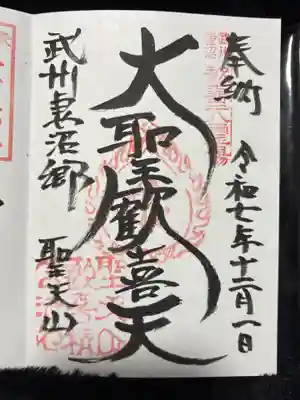 奉納 令和七年十二月一日
大聖歓喜天
武州妻沼郷 聖天山